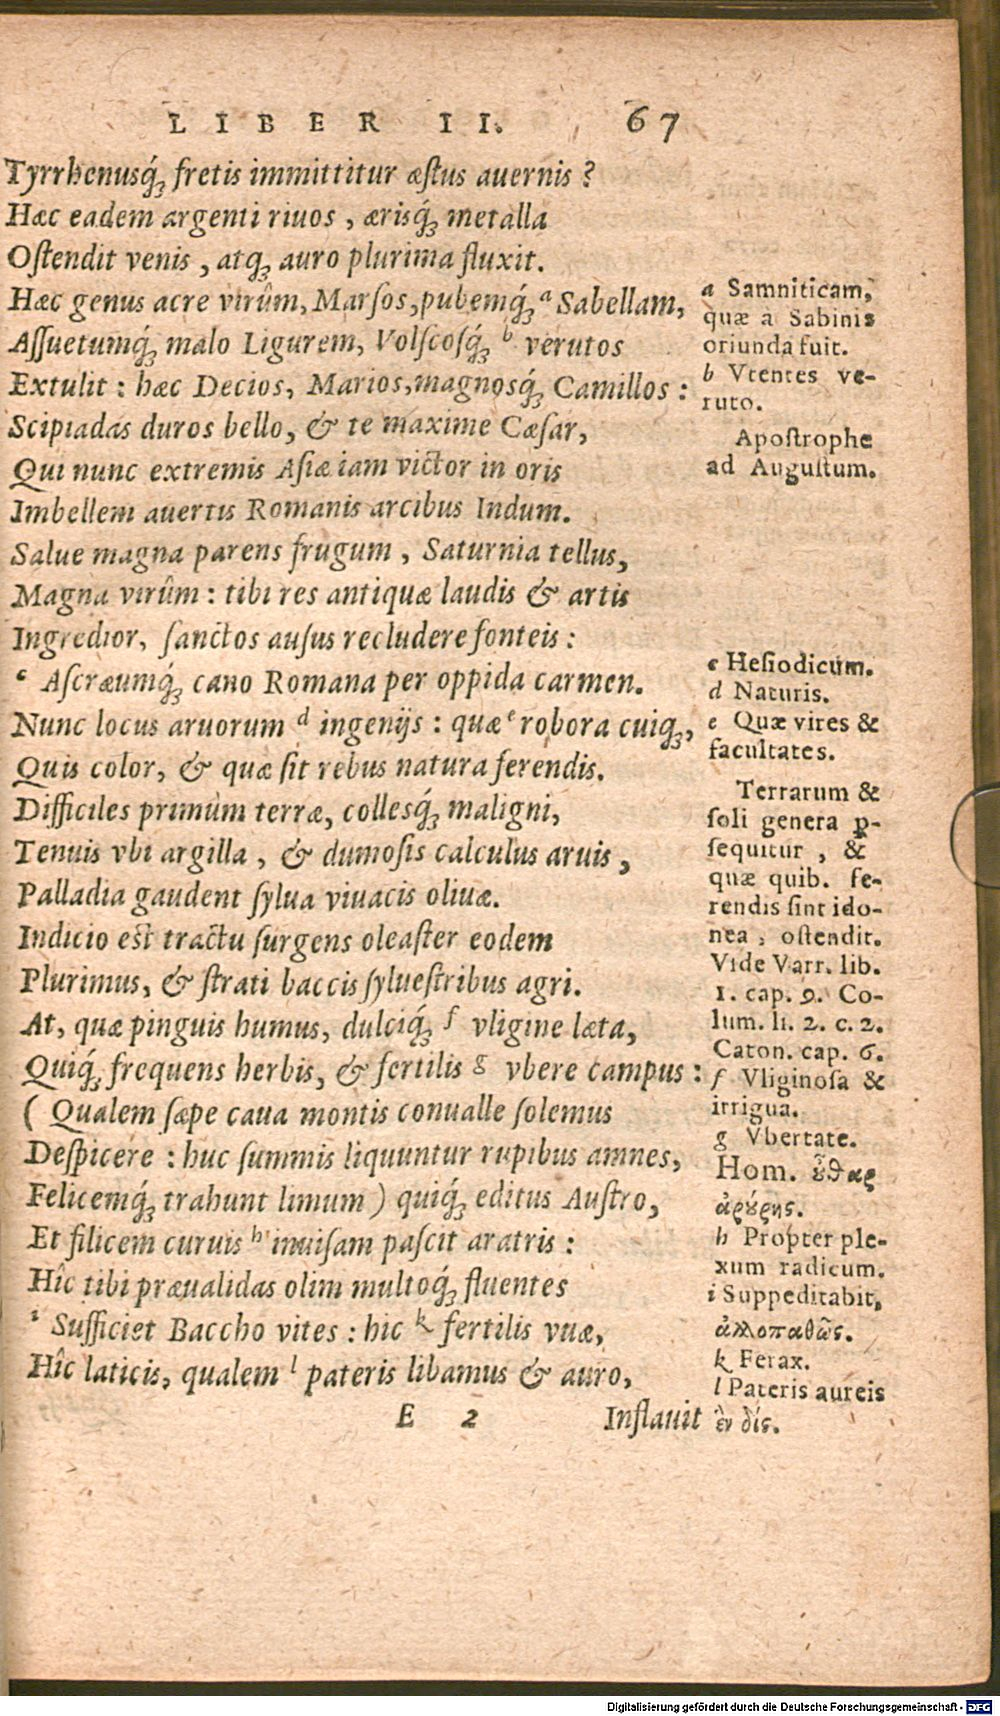 LIBER II. 67
Tyrrhenusq́; fretis immittitur æſtus auernis?
Hæc eadem argenti riuos, ærisq́; metalla
Oſtendit venis, atq; auro plurima fluxit.
Hæc genus acre virûm, Marſos, pubemq́; ᵃ Sabellam,
Aſſuetumq́; malo Ligurem, Volſcosq́; ᵇ verutos
Extulit: hæc Decios, Marios, magnosq́; Camillos:
Scipiadas duros bello, & te maxime Cæſar,
Qui nunc extremis Aſiæ iam victor in oris
Imbellem auertis Romanis arcibus Indum.
Salue magna parens frugum, Saturnia tellus,
Magna virûm: tibi res antiquæ laudis & artis
Ingredior, ſanctos auſus recludere fonteis:
ᶜ Aſcræumq́; cano Romana per oppida carmen.
Nunc locus aruorum ᵈ ingenijs: quæ ᵉ robora cuiq;,
Quis color, & quæ ſit rebus natura ferendis.
Difficiles primùm terræ, collesq́; maligni,
Tenuis vbi argilla, & dumoſis calculus aruis,
Palladia gaudent ſylua viuacis oliuæ.
Indicio eſt tractu ſurgens oleaſter eodem
Plurimus, & ſtrati baccis ſylueſtribus agri.
At, quæ pinguis humus, dulciq́; ᶠ vligine læta,
Quiq́; frequens herbis, & fertilis ᵍ vbere campus:
(Qualem ſæpe caua montis conualle ſolemus
Deſpicere: huc ſummis liquuntur rupibus amnes,
Felicemq́; trahunt limum) quiq́; editus Auſtro,
Et filicem curuis ʰ inuiſam paſcit aratris:
Hîc tibi præualidas olim multoq́; fluentes
ⁱ Sufficiet Baccho vites: hic ᵏ fertilis vuæ,
Hîc laticis, qualem ˡ pateris libamus & auro,
E 2 Inflauit
a Samniticam,
quæ à Sabinis
oriunda fuit.
b Vtentes ve-
ruto.
Apoſtrophe
ad Auguſtum.
c Heſiodicum.
d Naturis.
e Quæ vires &
facultates.
Terrarum &
ſoli genera ꝑ-
ſequitur, &
quæ quib. fe-
rendis ſint ido-
nea, oſtendit.
Vide Varr. lib.
1. cap. 9. Co-
lum. li. 2. c. 2.
Caton. cap. 6.
f Vliginoſa &
irrigua.
g Vbertate.
Hom. οὖθαρ
ἀρούρης.
h Propter ple-
xum radicum.
i Suppeditabit,
ἀλλοπαθῶς.
k Ferax.
l Pateris aureis
ἓν δίς.
Digitalisierung gefördert durch die Deutsche Forschungsgemeinschaft - DFG